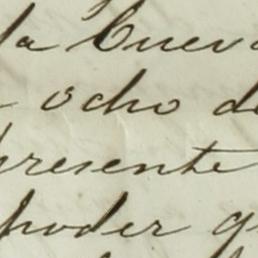 la Cueva
ocho de
presente
poder q